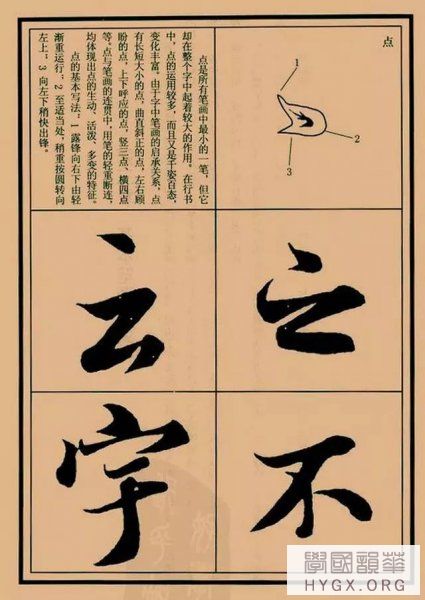 点
1
2
3
点是所有笔画中最小的一笔，但它
却在整个字中起着较大的作用。在行书
中，点的运用较多，而且又是千姿百态，
变化丰富。由于字中笔画的启承关系，点
有长短大小的点，曲直斜正的点，左右顾
盼的点，上下呼应的点，竖三点、横四点
等，点与笔画的连贯中，用笔的轻重断连，
均体现出点的生动、活泼、多变的特征。
点的基本写法：1 露锋向右下由轻
渐重运行；2 至适当处，稍重按圆转向
左上；3 向左下稍快出锋。
之
不
云
字
學國韻華
HYGX.ORG